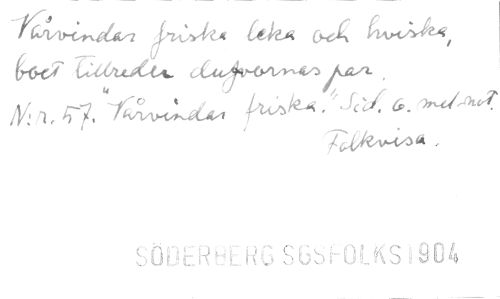 Vårvindar friska leka och hviska,
boet tillreder dufvornas par.
N:r. 57. "Vårvindar friska." Sid. o. mel-not.
Folkvisa.
SÖDERBERG SGSFOLKS1904